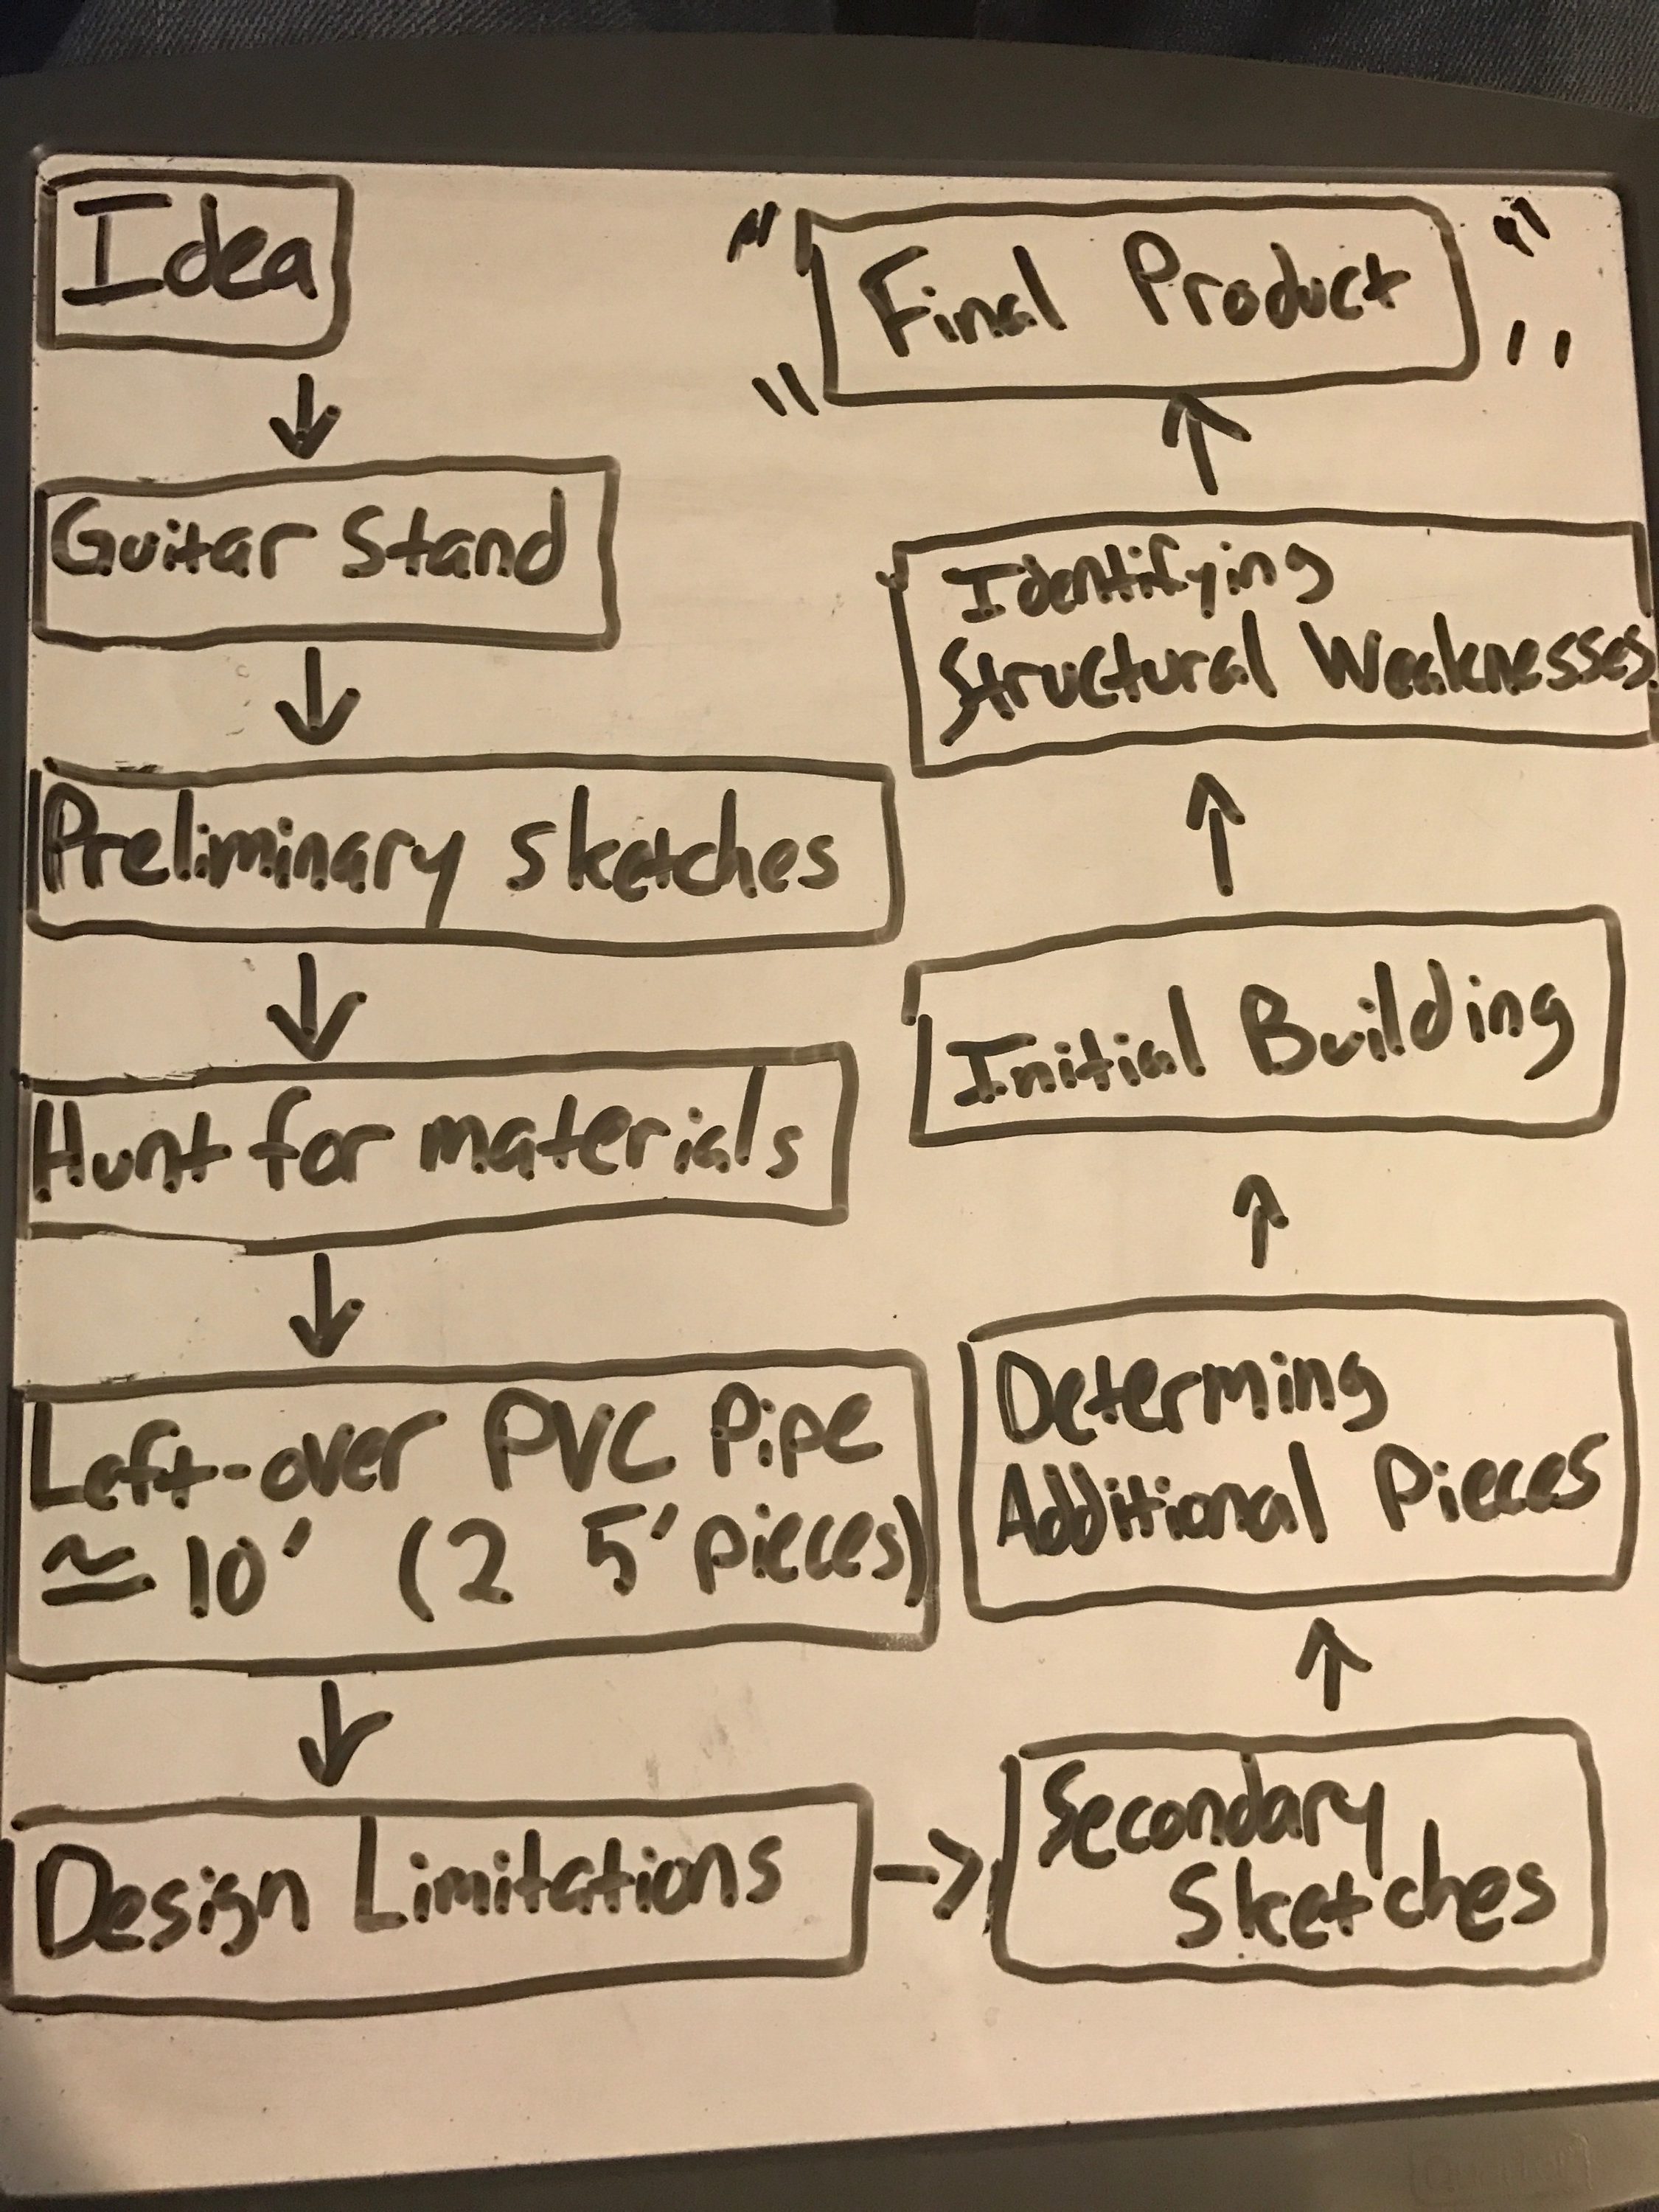 Idea
Guitar Stand
Preliminary Sketches
Hunt for materials
Left-over PVC Pipe
≅ 10' (2 5' pieces)
Design Limitations
Secondary
Sketches
Determing
Additional Pieces
Initial Building
Identifying
Structural Weaknesses
" Final Product "